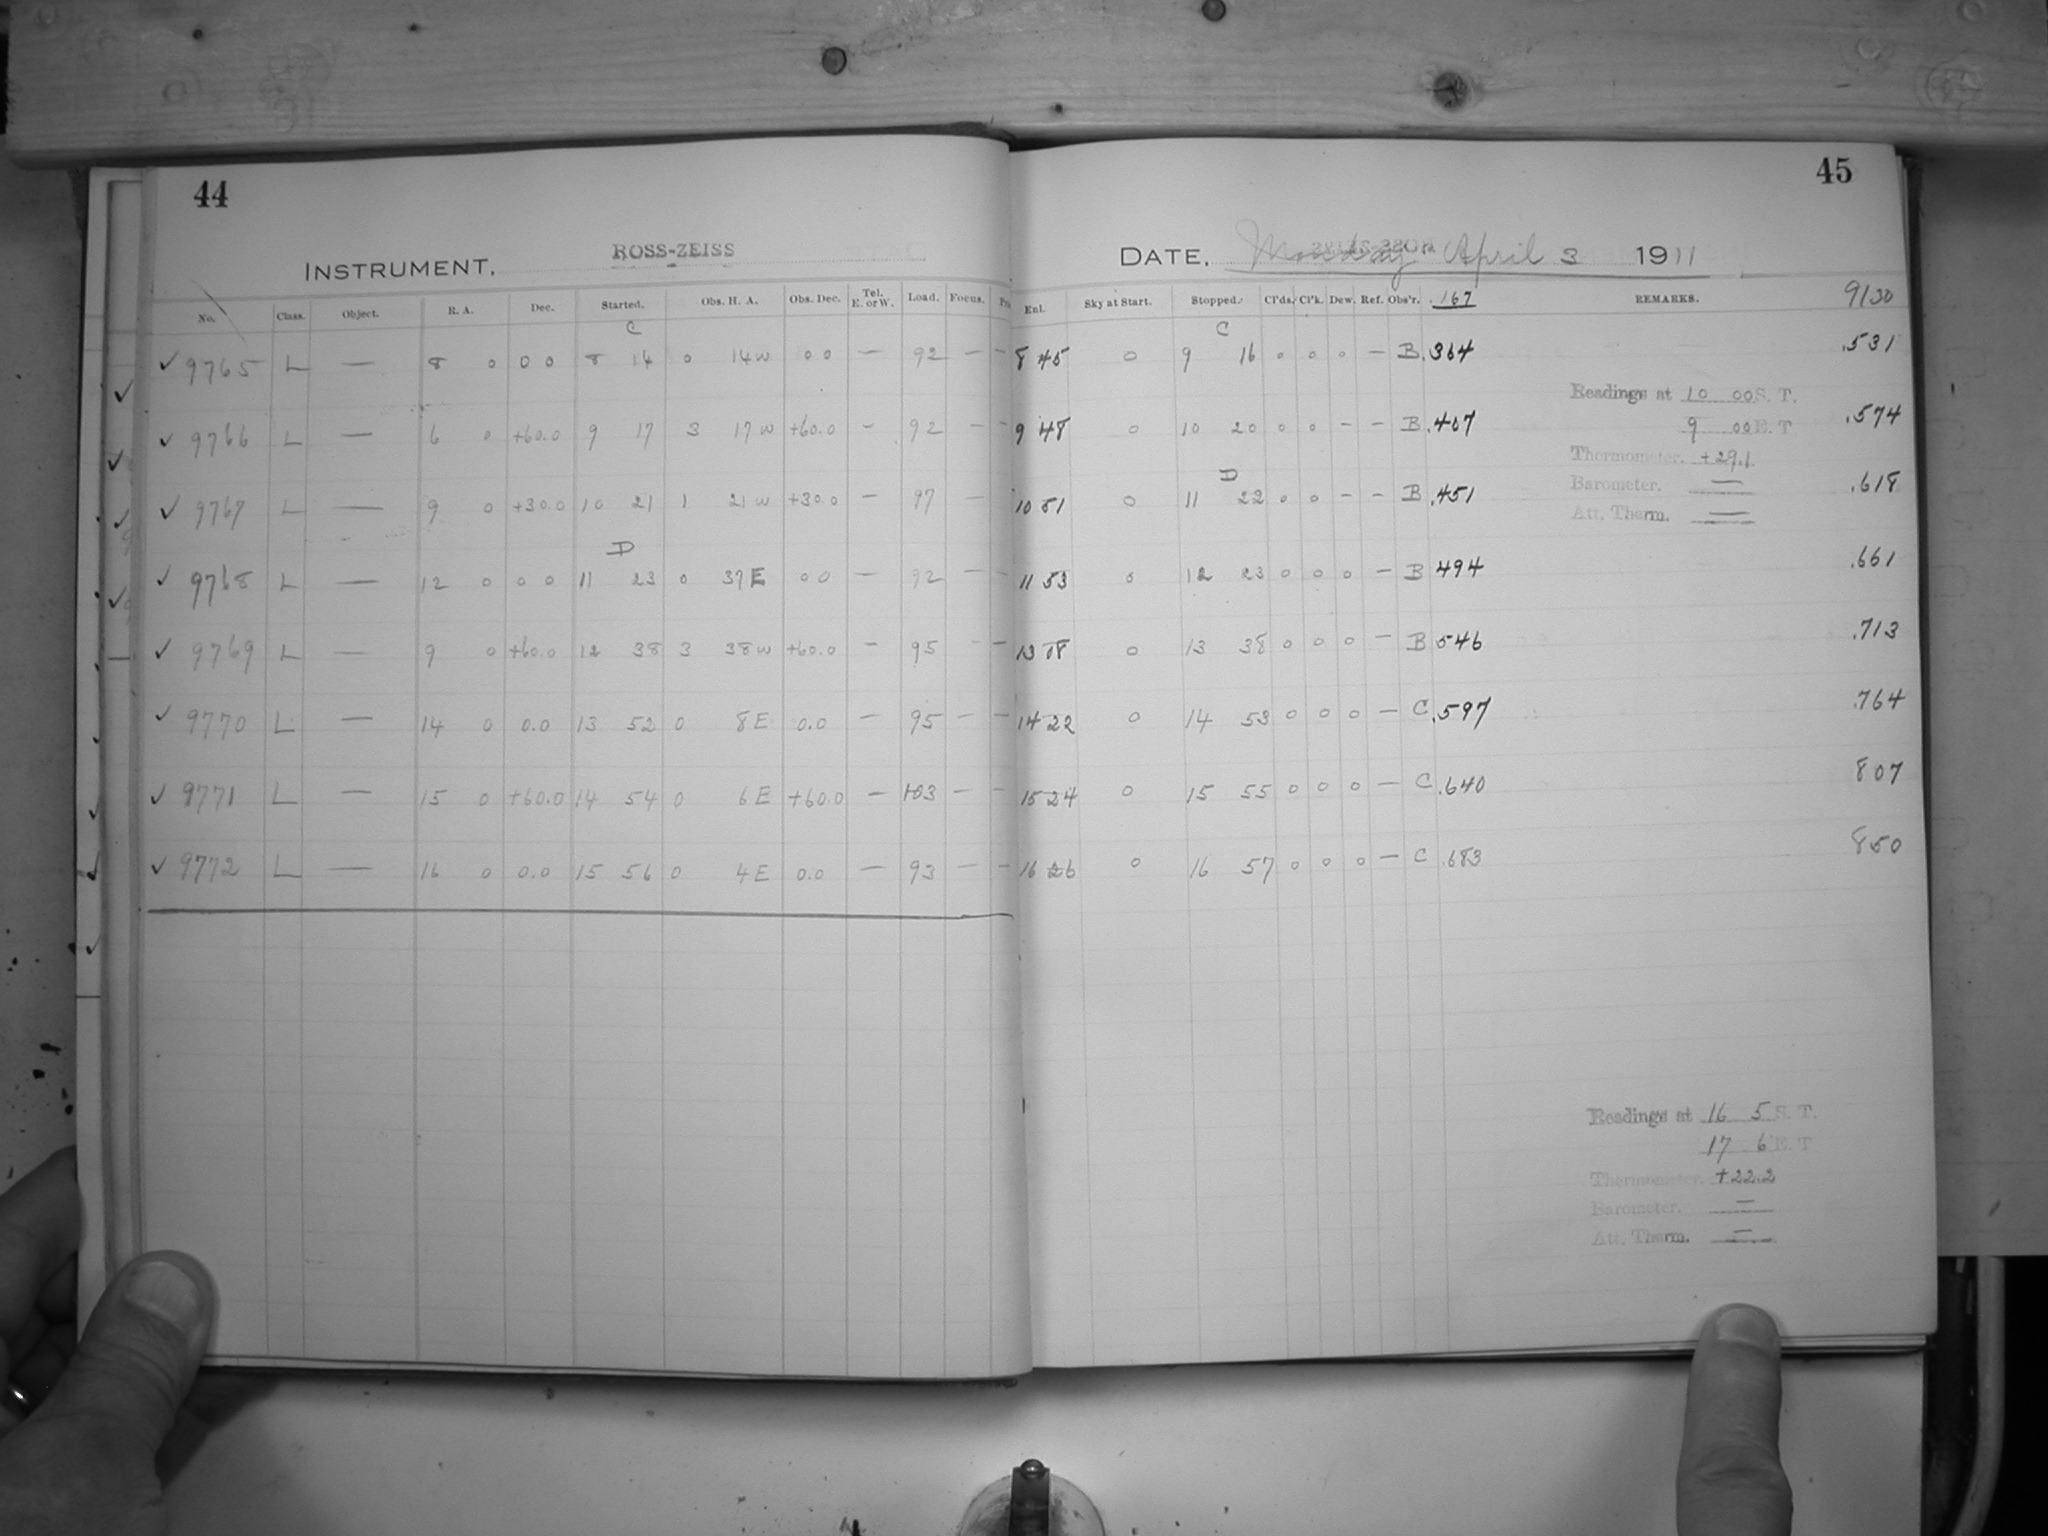 44
45
INSTRUMENT, ROSS-ZEISS
DATE, Monday April 3 1911
No. Class. Object. R. A. Dec. Started. Obs. H. A. Obs. Dec. Tel. E. or W. Load. Focus. Enl. Sky at Start. Stopped. Cl'ds. Cl'k. Dew. Ref. Obs'r. .167 REMARKS. 9130
C C
✓ 9765 L — 8 0 0 0 8 14 0 14 W 0 0 — 92 — — 8 45 0 9 16 0 0 0 — B .364 .531
Readings at 10 00 S. T.
✓ 9766 L — 6 0 +60.0 9 17 3 17 W +60.0 — 92 — — 9 48 0 10 20 0 0 — — B .407 .574
9 00 E. T
Thermometer. +29.1
D
✓ 9767 L — 9 0 +30.0 10 21 1 21 W +30.0 — 97 — 10 51 0 11 22 0 0 — — B .451 .618
Barometer. —
Att. Therm. —
D
✓ 9768 L — 12 0 0 0 11 23 0 37 E 0 0 — 92 — — 11 53 0 12 23 0 0 0 — B 494 .661
✓ 9769 L — 9 0 +60.0 12 38 3 38 W +60.0 — 95 — — 13 0 13 38 0 0 0 — B 546 .713
✓ 9770 L — 14 0 0.0 13 52 0 8 E 0.0 — 95 — — 14 22 0 14 53 0 0 0 — C .597 .764
✓ 9771 L — 15 0 +60.0 14 54 0 6 E +60.0 — 103 — — 15 24 0 15 55 0 0 0 — C .640 807
✓ 9772 L — 16 0 0.0 15 56 0 4 E 0.0 — 93 — — 16 26 0 16 57 0 0 0 — C .683 850
Readings at 16 5 S. T.
17 6 E. T
Thermometer. +22.2
Barometer. —
Att. Therm. —